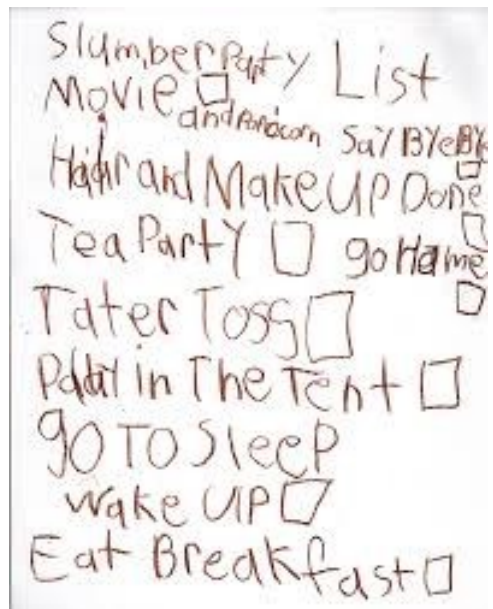 Slumber Party List
Movie □ and Popcorn
Say BYe BYe □
Hair and Make UP Done □
Tea Party □
go Home □
Tater Toss □
Party in The Tent □
gO TO Sleep
wake UP □
Eat Breakfast □